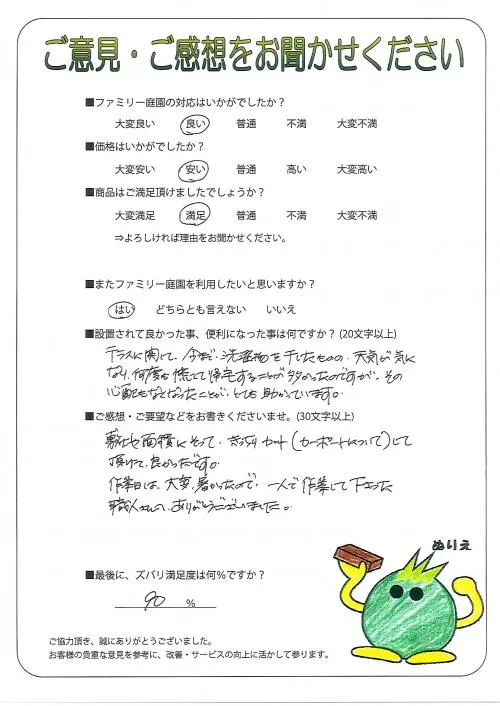 ご意見・ご感想をお聞かせください
■ファミリー庭園の対応はいかがでしたか？
大変良い 良い 普通 不満 大変不満
■価格はいかがでしたか？
大変安い 安い 普通 高い 大変高い
■商品はご満足頂けましたでしょうか？
大変満足 満足 普通 不満 大変不満
⇒よろしければ理由をお聞かせください。
■またファミリー庭園を利用したいと思いますか？
はい どちらとも言えない いいえ
■設置されて良かった事、便利になった事は何ですか？(20文字以上)
テラスに関して、今まで、洗濯物を干したものの、天気が気に
なり、何度も慌てて帰宅することが多かったのですが、その
心配もなくなったことが、とても助かっています。
■ご感想・ご要望などをお書きくださいませ。(30文字以上)
敷地面積にそって、きっちりカット(カーポートについて)して
頂けて、良かったです。
作業日は、大変、暑かったので、一人で作業して下さった
職人さんへ、ありがとうございました。
ぬりえ
■最後に、ズバリ満足度は何％ですか？
90 ％
ご協力頂き、誠にありがとうございました。
お客様の貴重な意見を参考に、改善・サービスの向上に活かして参ります。